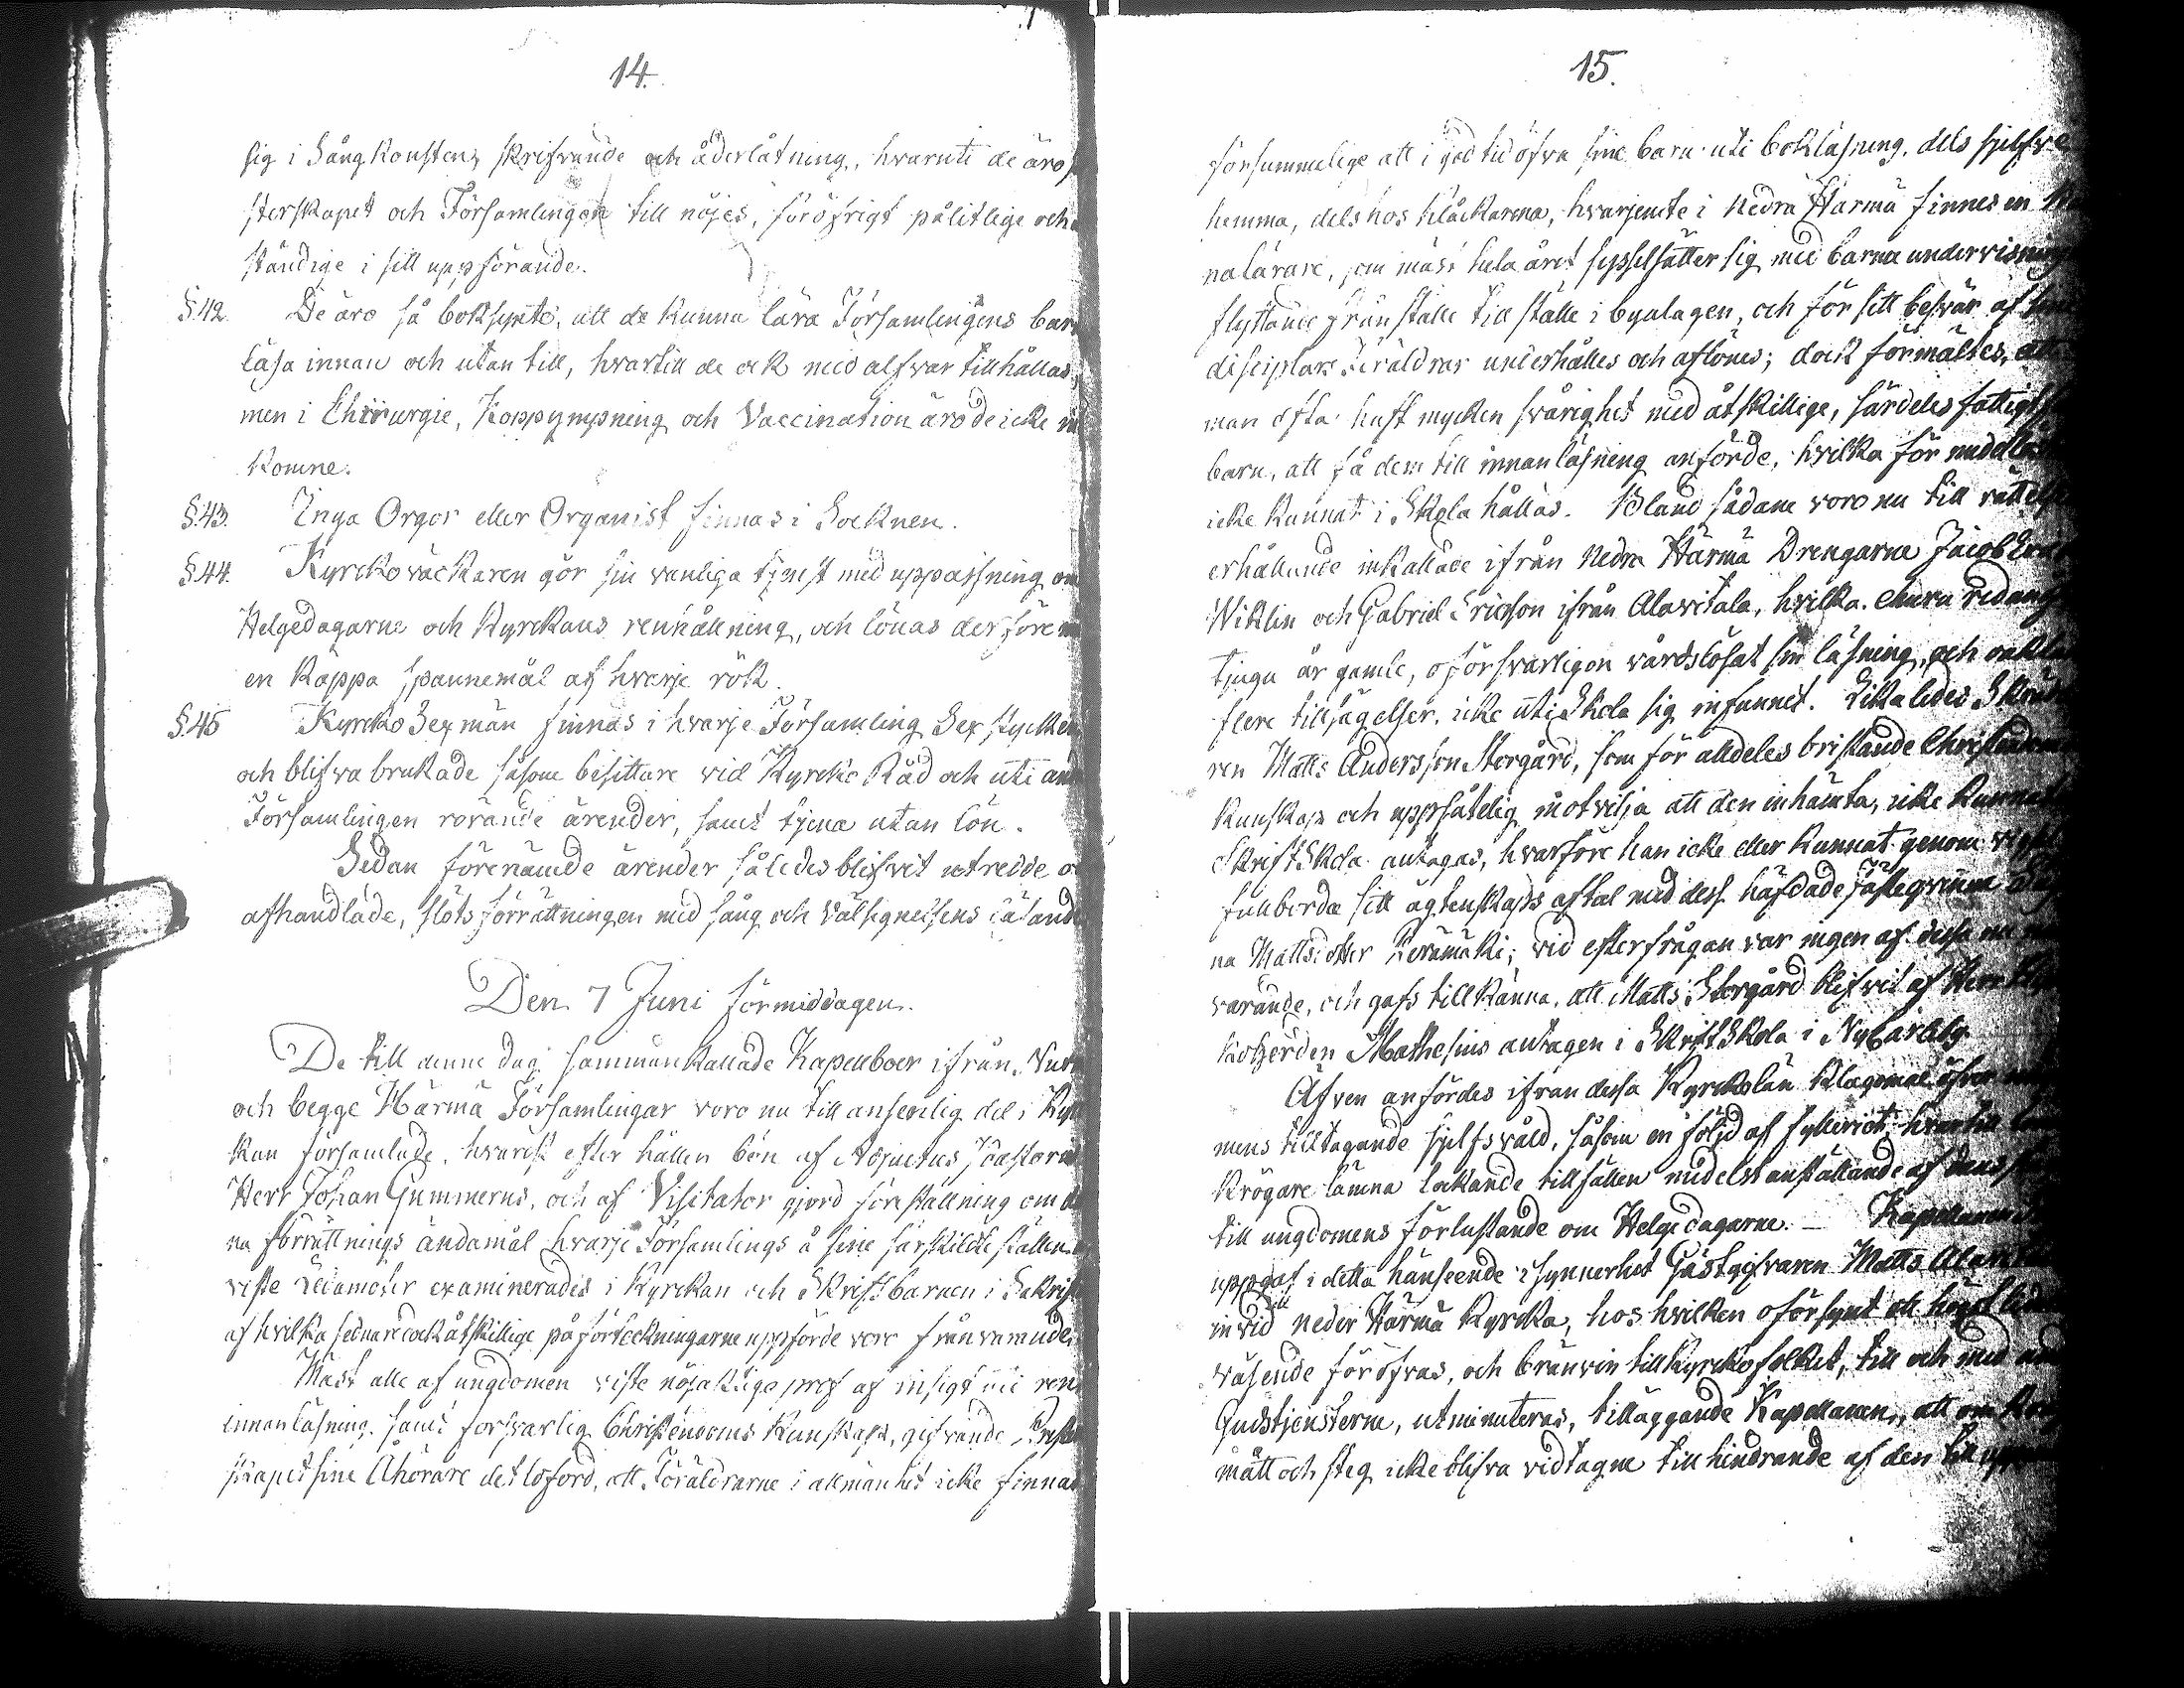 14.
sig i Sångkonsten, skrifvande och åderlåtning, hvaruti de äro
sterskapet och Församlingen till nöjes, föröfrigt pålitlige och
ständige i sitt uppförande.
§.42. De äro så boksynte, att de kunna lära Församlingens bar
läsa innan och utan till, hvartill de ock med alfvar tillhållas,
men i Chirurgie, Koppympning och Vaccination äro de icke in
komne.
§.43. Inga Orgor eller Organist finnas i Socknen.
§.44. Kyrckoväckaren gör sin vanliga tjenst med uppassning om
Helgedagarne och Kyrckans renhållning, och lönas derföre m
en kappa spannemål af hvarje rök.
§.45 Kyrcko Sexmän finnas i hvarje Församling Sex stycken
och blifva brukade såsom bisittare vid Kyrcko Råd och uti and
Församlingen rörande ärender, samt tjena utan lön.
Sedan förenämde ärender således blifvit utredde o
afhandlade, slöts förrättningen med sång och Välsignelsens läsand
Den 7 Juni förmiddagen.
De till denne dag sammankallade Kapellboer ifrån
och begge Härmä Församlingar voro nu till ansenlig del i Kyr
kan församlade, hvarest efter hållen bön af Adjunctus Pastoral
Herr Johan Gummerus, och af Visitator gjord föreställning om de
na förrättnings ändamål hvarje Församlings å sine särskildte ställen
viste Ledamoter examinerades i Kyrckan och Skriftbarnen i Sakrist
af hvilka sednare dock åtskillige på förteckningarne uppförde voro frånvarande.
Mäst alle af ungdomen viste nöjaktige prof af insigt uti ren
innanläsning, samt försvarlig Christendoms Kunskap, gifvande Prest
skapet sine Åhörare det loford, att Föräldrarne i allmänhet icke finnas
15.
försummelige att i god tid öfva sine barn uti bokläsning, dels sjelfve
hemma, dels hos klåckarena, hvarjemte i Nedra Härmä finnes en
nalärare, som mäst hela året sysselsätter sig med barna undervisning
flyttande från ställe till ställe i byalagen, och för sitt besvär af
disciplars Föräldrar underhålles och aflönes; dock förmältes, att
man ofta haft mycken svårighet med åtskillige, särdeles fattigt
barn, att få dem till innanläsning anförde, hvilka för medellös
icke kunnat i Skola hållas. Bland sådane voro nu till rättelse
erhållande inkallade ifrån Nedra Härmä Drengarne Jacob
Wiklin och Gabriel Ericsson ifrån Alavitala, hvilka, ehuru redan
tjugu år gamle, oförsvarligen vårdslösat sin läsning, och oaktat
flere tillsägelser, icke uti Skola sig infunnit. Likaledes
ren Matts Andersson Storgård, som för alldeles bristande Christendoms
kunskap och uppsåtelig motvilja att den inhämta, icke kunnat
Skriftskola antagas, hvarföre han icke eller kunnat genom vigs
fullborda sitt ägtenskaps aftal med dess häfdade fästeqvinna
na Mattsdotter Perämäki; vid efterfrågan var ingen af desse nu
varande, och gafs tillkänna, att Matts Storgård blifvit af Herr
koherden Mathesius antagen i Skriftskola i Nycarleby.
Äfven anfördes ifrån dessa Kyrckolän klagomål öfver
mens tilltagande sjelfsvåld, såsom en följd af fylleriet, hvartill
krögare lämna lockande tillfällen medelst anställande af dans
till ungdomens förlustande om Helgedagarne. — Kapellanen
uppgaf i detta hänseende i synnerhet Gästgifvaren Matts
invid neder Härmä Kyrcka, hos hvilken oförsynt ett högst
väsende föröfvas, och bränvin till Kyrckofolket, till och med
Gudstjensterne, utminuteras, tilläggande Kapellanen, att om
mått och steg icke blifva vidtagne till hindrande af den